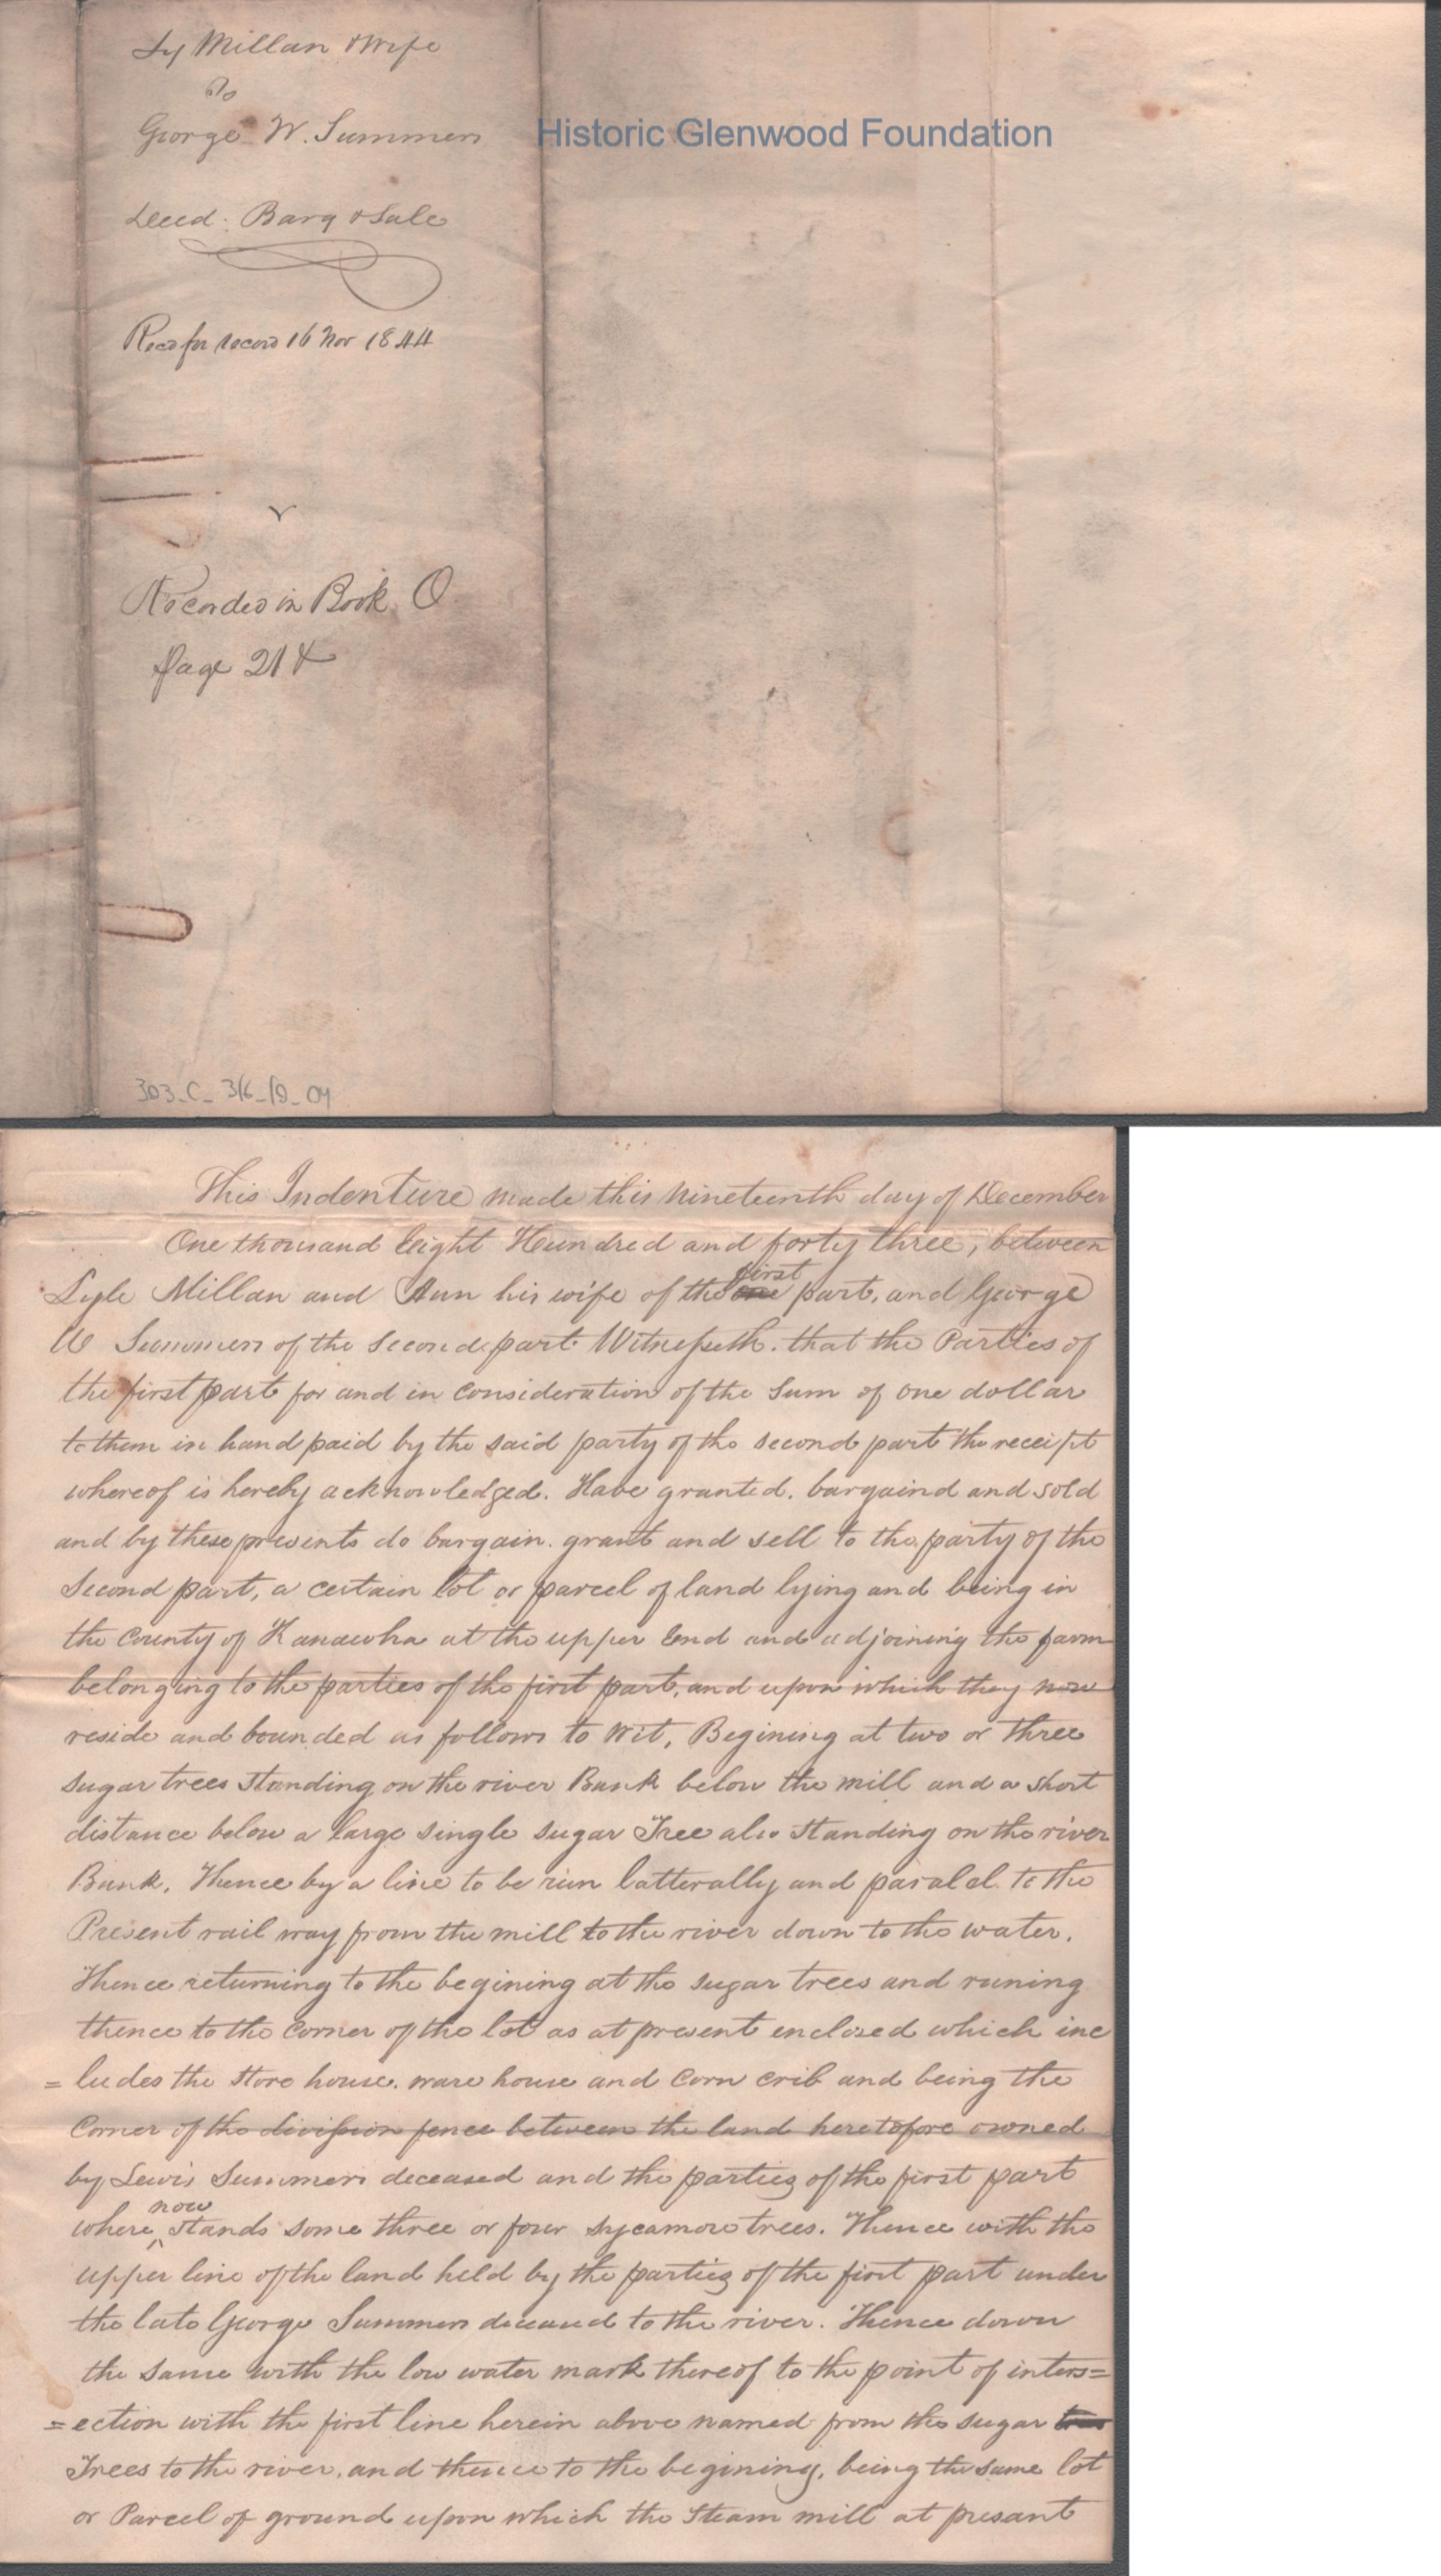 Ly Millan & Wife
To
George W. Summers
Historic Glenwood Foundation
Deed: Barg & Sale
Recd for record 16 Nov 1844
Recorded in Book O
page 214
303_C_3/6_/9_04
This Indenture made this Nineteenth day of December
One thousand Eight Hundred and forty three, between
first
Lyle Millan and Ann his wife of the one part, and George
W Summers of the second part Witnesseth. that the Parties of
the first part for and in consideration of the Sum of one dollar
to them in hand paid by the said party of the second part the receipt
whereof is hereby acknowledged. Have granted. bargaind and sold
and by these presents do bargain. grant and sell to the party of the
Second part, a certain lot or parcel of land lying and being in
the County of Kanawha at the upper End and adjoining the farm
belonging to the parties of the first part, and upon which they now
reside and bounded as follows to wit, Begining at two or three
sugar trees standing on the river Bank below the mill and a short
distance below a large single sugar Tree also standing on the river
Bank. Thence by a line to be run latterally and paralel to the
Present rail way from the mill to the river down to the water.
Thence returning to the begining at the sugar trees and runing
thence to the Corner of the lot as at present enclosed which inc
=ludes the store house. ware house and Corn Crib and being the
Corner of the division fence between the land heretofore owned
by Lewis Summers deceased and the parties of the first part
now
where ^ stands some three or four sycamore trees. Thence with the
upper line of the land held by the parties of the first part under
the late George Summers deceased to the river. Thence down
the same with the low water mark thereof to the point of inters=
=ection with the first line herein above named from the sugar
Trees to the river, and thence to the begining, being the same lot
or Parcel of ground upon which the Steam mill at presant